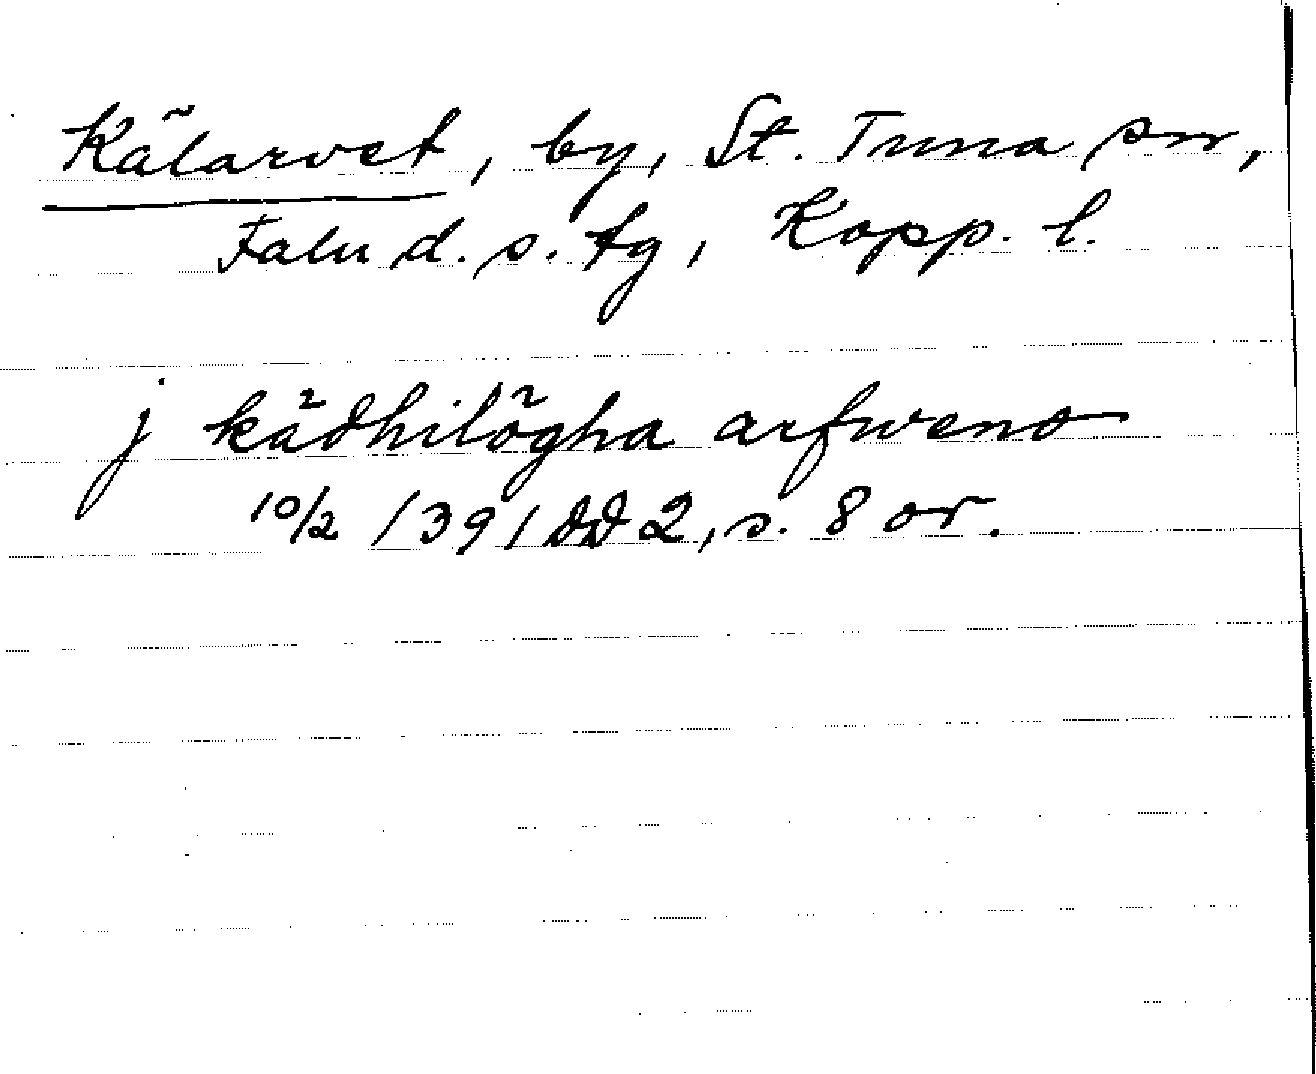 Kälarvet, by, St. Tuna sn,
Falu d. s. tg, Kopp. l.
j kädhilögha arfweno
10/2 1391 DD 2, s. 8 or.